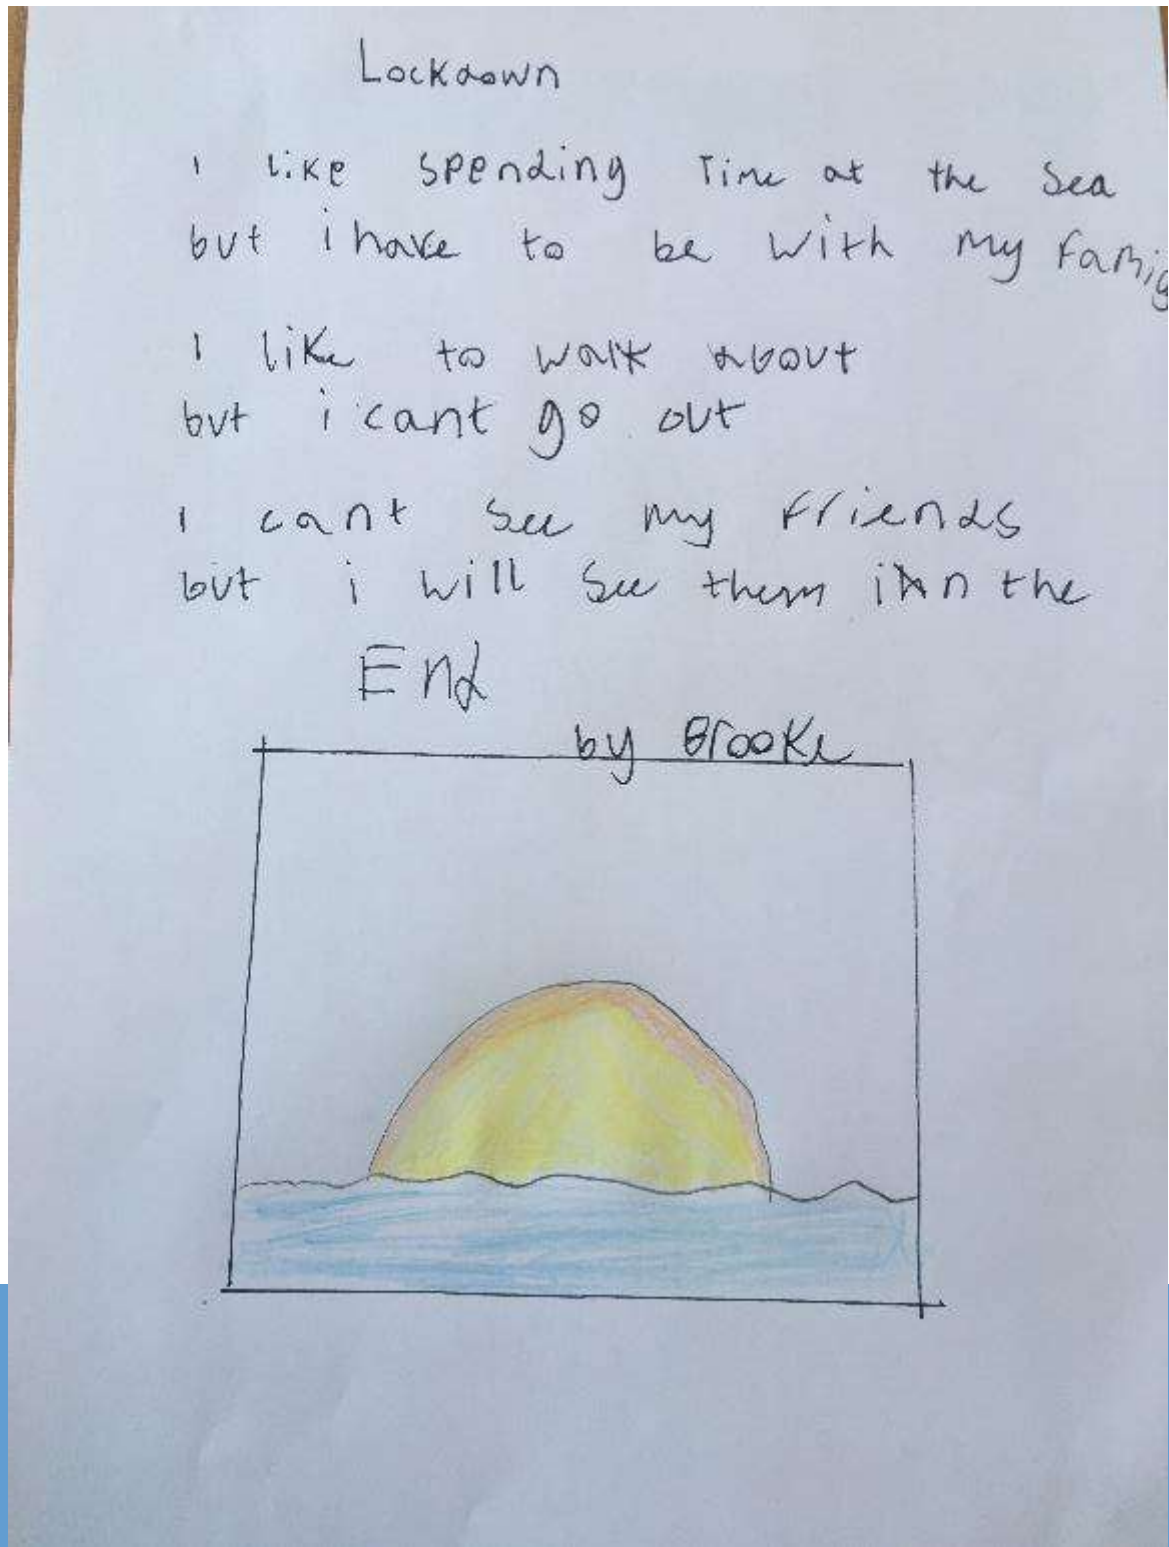 Lockdown
I like spending Time at the Sea
but i have to be with my
I like to walk about
but i cant go out
I cant see my friends
but i will see them in the
End
by Brooke